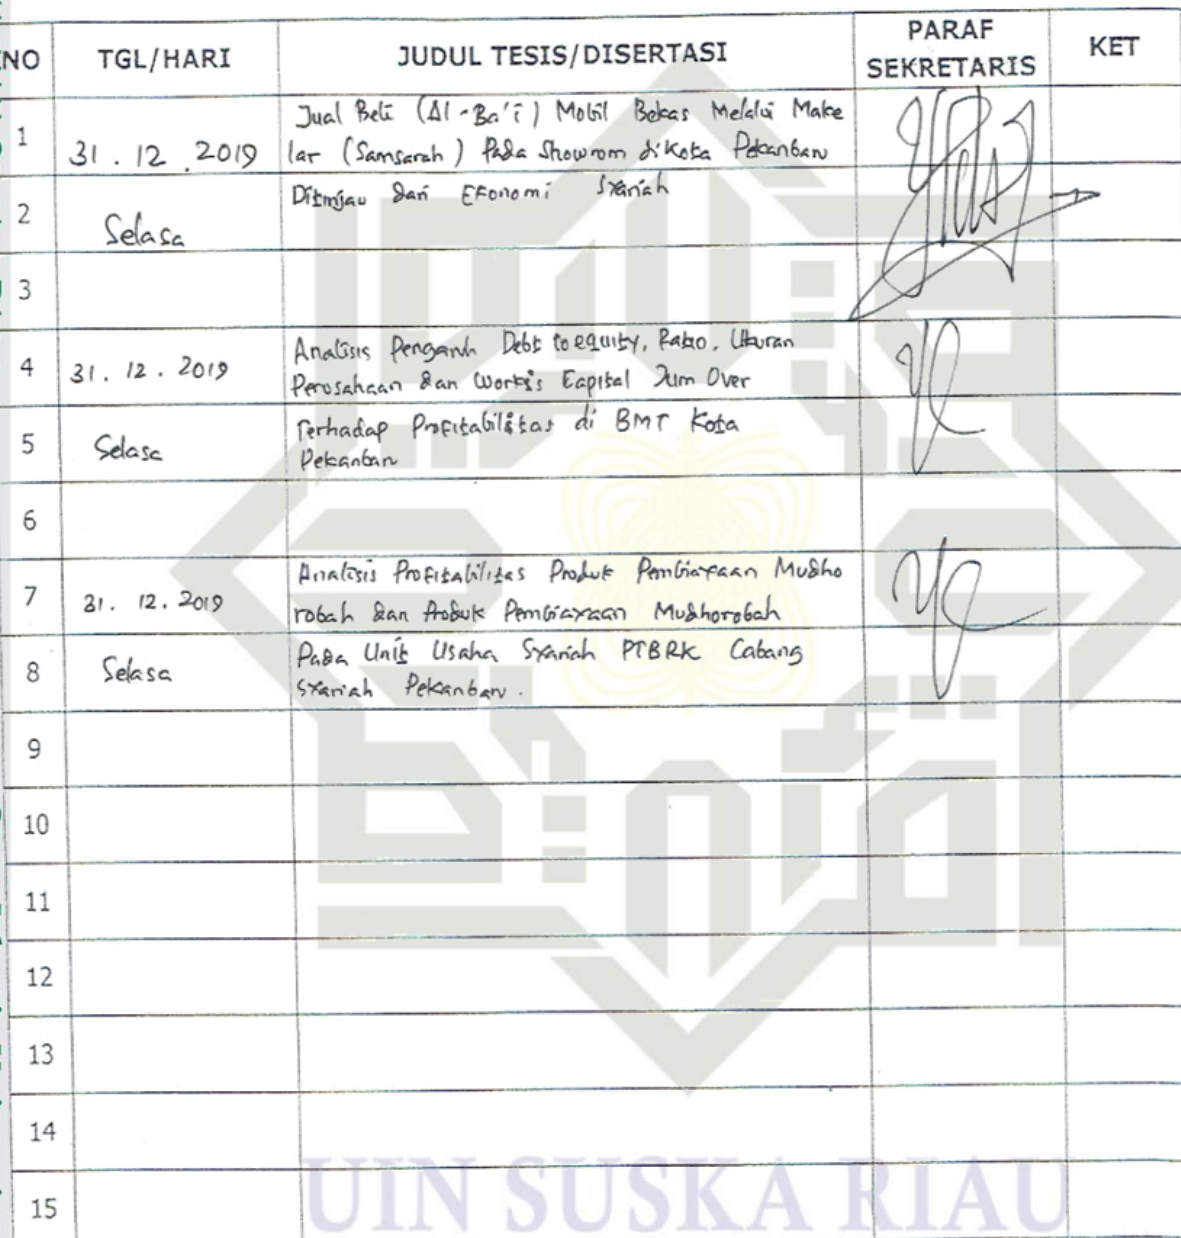 NO TGL/HARI JUDUL TESIS/DISERTASI PARAF SEKRETARIS KET
1 31 . 12 . 2019 Jual Beli (Al-Ba'i) Mobil Bekas Melalui Make
lar (Samsarah) Pada Showrom di Kota Pekanbaru
2 Selasa Ditinjau dari Ekonomi Syariah
3
4 31 . 12 . 2019 Analisis Pengaruh Debt to equity, Ratio, Ukuran
Perusahaan dan Capital Over
5 Selasa Terhadap Profitabilitas di BMT Kota
Pekanbaru
6
7 31 . 12 . 2019 Analisis Profitabilitas Produk Pembiayaan Mudho
robah dan Produk Pembiayaan Mudhorobah
8 Selasa Pada Unit Usaha Syariah PTBRK Cabang
Syariah Pekanbaru.
9
10
11
12
13
14
15
UIN SUSKA RIAU